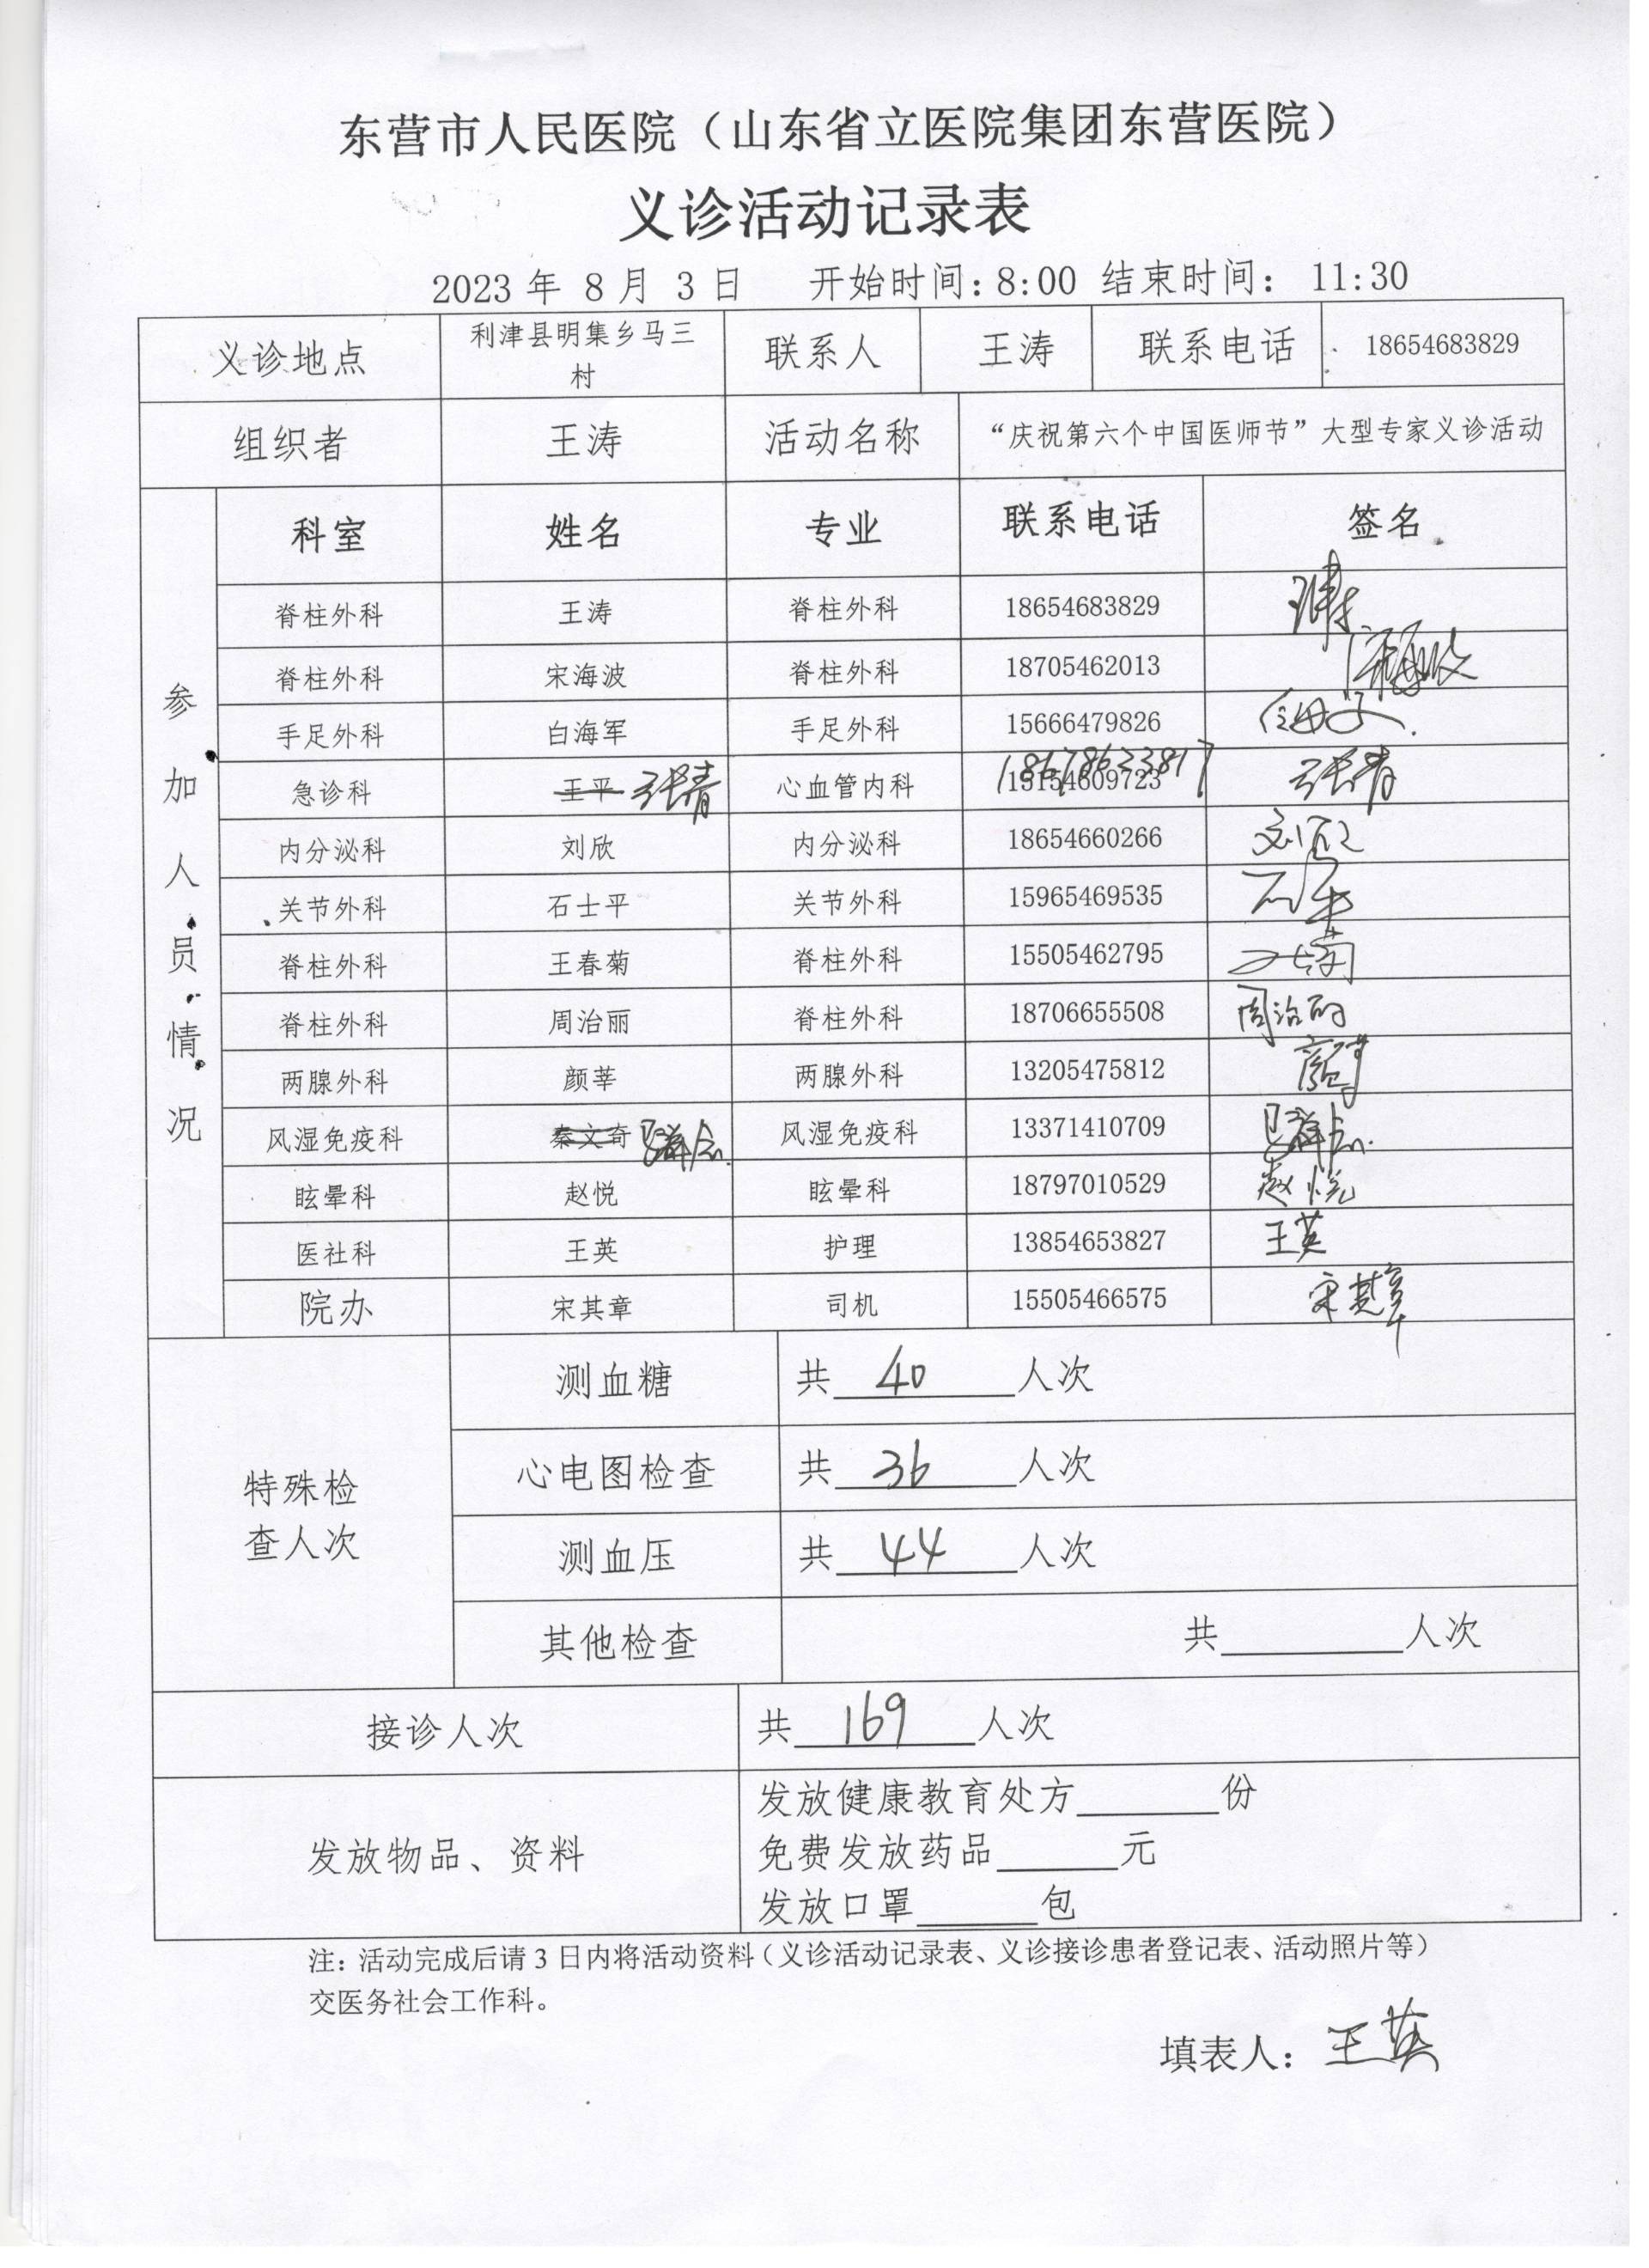 东营市人民医院（山东省立医院集团东营医院）
义诊活动记录表
2023 年 8 月 3 日 开始时间：8:00 结束时间： 11:30
义诊地点 利津县明集乡马三村 联系人 王涛 联系电话 18654683829
组织者 王涛 活动名称 “庆祝第六个中国医师节”大型专家义诊活动
参加人员情况
科室 姓名 专业 联系电话 签名
脊柱外科 王涛 脊柱外科 18654683829 王涛
脊柱外科 宋海波 脊柱外科 18705462013 宋海波
手足外科 白海军 手足外科 15666479826
急诊科 王平 张青 心血管内科 15154609723 18678633817 张青
内分泌科 刘欣 内分泌科 18654660266 刘欣
关节外科 石士平 关节外科 15965469535 石士平
脊柱外科 王春菊 脊柱外科 15505462795 王春菊
脊柱外科 周治丽 脊柱外科 18706655508 周治丽
两腺外科 颜莘 两腺外科 13205475812 颜莘
风湿免疫科 秦文奇 风湿免疫科 13371410709
眩晕科 赵悦 眩晕科 18797010529 赵悦
医社科 王英 护理 13854653827 王英
院办 宋其章 司机 15505466575 宋其章
特殊检查人次
测血糖 共 40 人次
心电图检查 共 36 人次
测血压 共 44 人次
其他检查 共______人次
接诊人次 共 169 人次
发放物品、资料
发放健康教育处方______份
免费发放药品______元
发放口罩______包
注：活动完成后请 3 日内将活动资料（义诊活动记录表、义诊接诊患者登记表、活动照片等）
交医务社会工作科。
填表人：王英